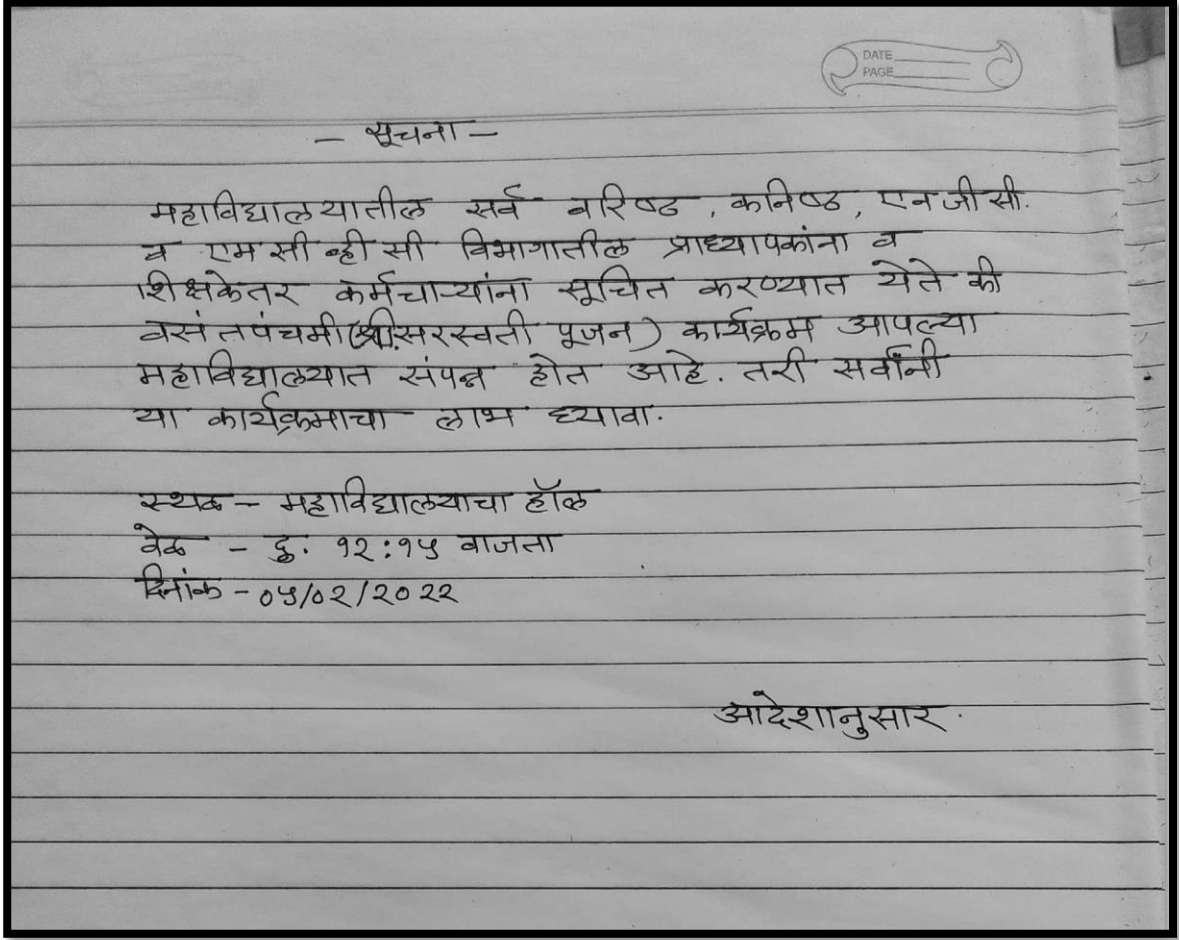 DATE
PAGE
- सूचना -
महाविद्यालयातील सर्व वरिष्ठ, कनिष्ठ, एन जी सी.
व एम सी व्ही सी विभागातील प्राध्यापकांना व
शिक्षकेतर कर्मचाऱ्यांना सूचित करण्यात येते की
वसंतपंचमी (श्री.सरस्वती पूजन) कार्यक्रम आपल्या
महाविद्यालयात संपन्न होत आहे. तरी सर्वांनी
या कार्यक्रमाचा लाभ घ्यावा.
स्थळ - महाविद्यालयाचा हॉल
वेळ - दु. १२:१५ वाजता
दिनांक - ०५/०२/२०२२
आदेशानुसार.